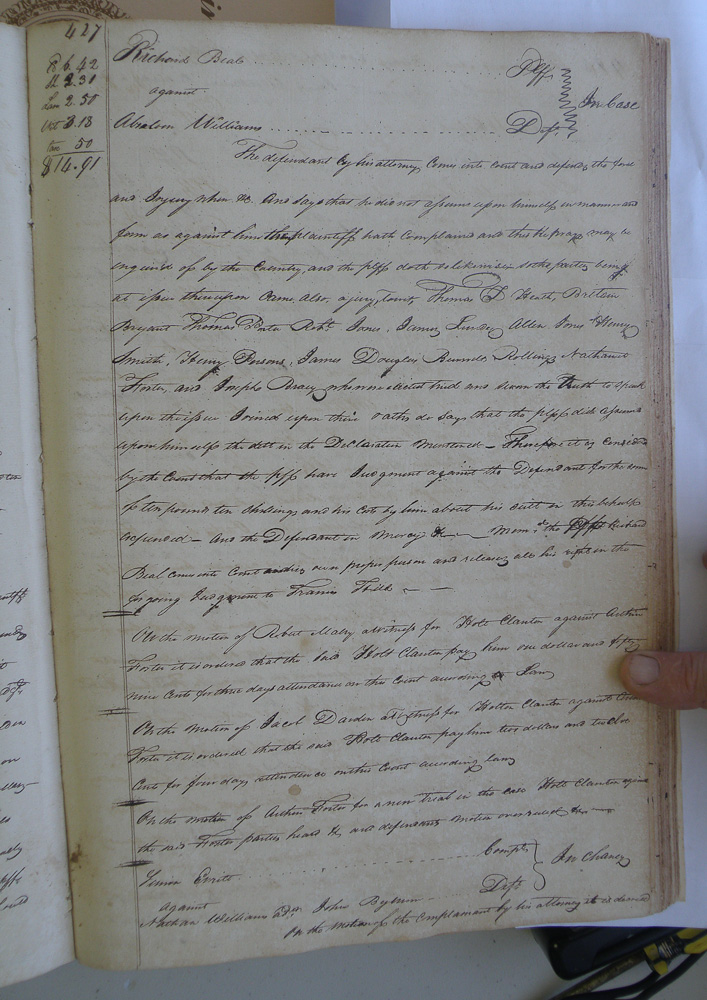 427
6.42
2.30
2.50
3.18
50
$14.91
Richard Beal Plff
against In Case
Absalom Williams Deft
The defendant by his attorney Comes into Court and defends the force
and Injury when &c. And says that he did not assume upon himself in manner and
form as against him the plaintiff hath Complained and this he prays may be
inquired of by the Country, and the plff doth so likewise so the parties being
at issue thereupon Came also, a jury, towit, Thomas D Heath, Britain
Bryant Thomas Robt. Jones, James Lundy Allen Jones Henry
Smith, Henry Parsons, James Douglas Rollings Nathaniel
Foster, and Joseph who were elected tried and sworn the Truth to speak
upon the issue Joined upon their oaths do says that the plff did assume
upon himself the debt in the Declaration Mentioned — Therefore it is
by the Court that the plff have Judgment against the Defendant for the sum
of ten pounds ten Shillings and his Costs by him about his suit in this behalf
expended — And the Defendant in Mercy &c — Memo. the Richard
Beal came into Court own proper person and releases all his right in the
foregoing Judgment to Francis
On the motion of Robert a witness for Holt Clanton against
Foster it is ordered that the said Holt Clanton pay him one dollar and fifty
nine Cents for three days attendance on this Court according to Law
On the Motion of Jacob Darden a witness for Clanton against
Foster it is ordered that the said Holt Clanton pay him two dollars and twelve
Cents for four days attendance on this Court according Law
On the motion of Foster for a new trial in the case Holt Clanton against
the said Foster parties heard &c and defendants motion overruled &c —
Compt
against In Chancy
Nathan Williams adr. John Deft
On the motion of the Complainant by his attorney it is decreed